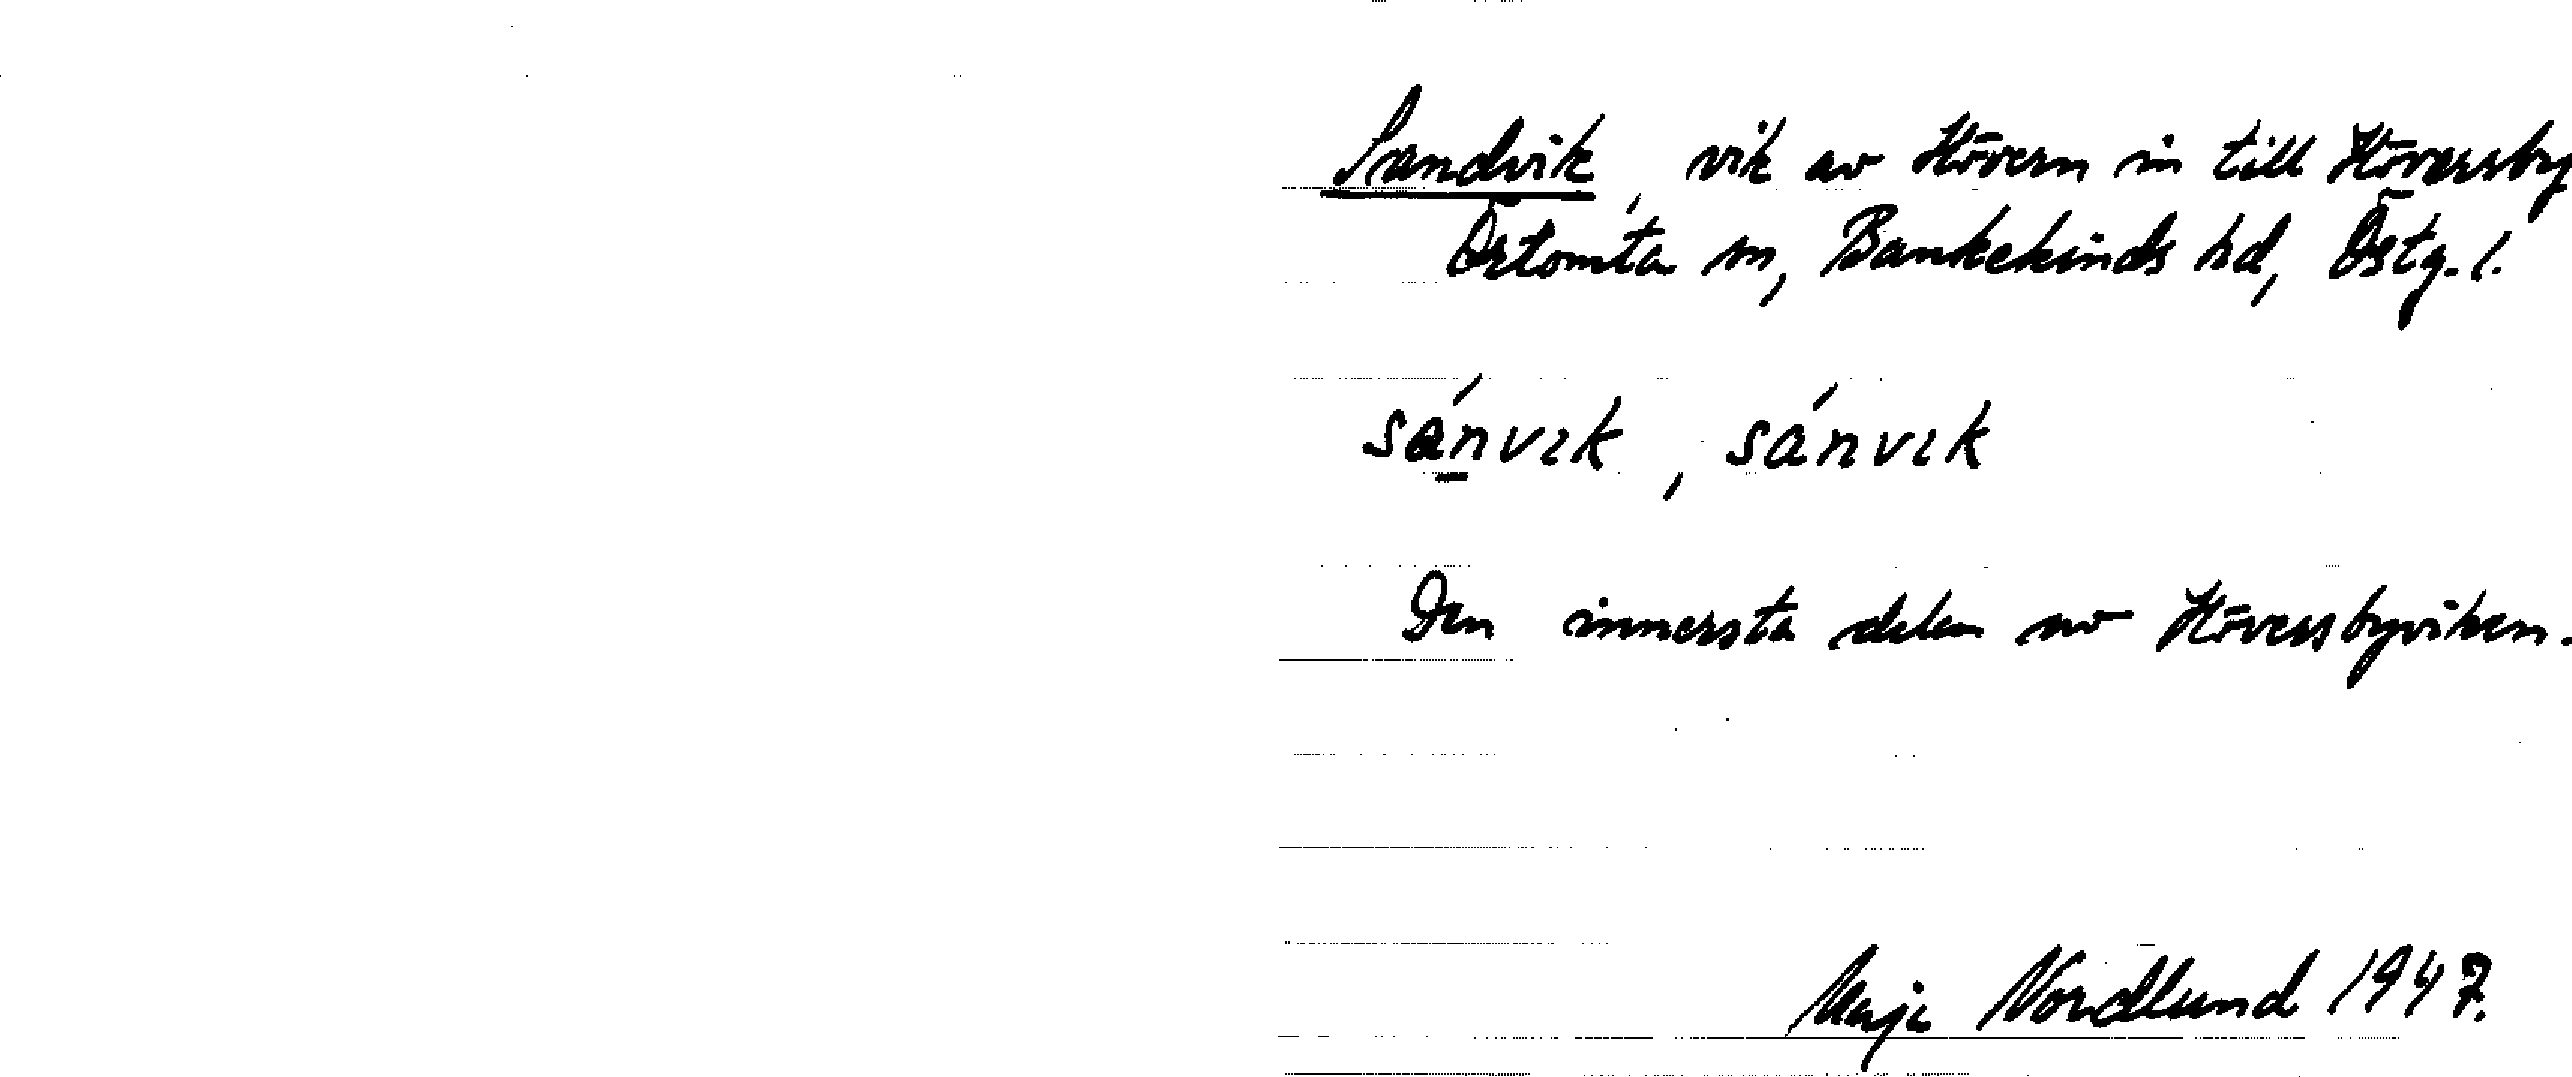 Sandvik, vik av Hövern in till Höversby
Örtomta sn, Bankekinds hd, Östg. l.
sánvik, sánvik
Den innersta delen av Höversbyviken.
Maja Nordlund 1947.